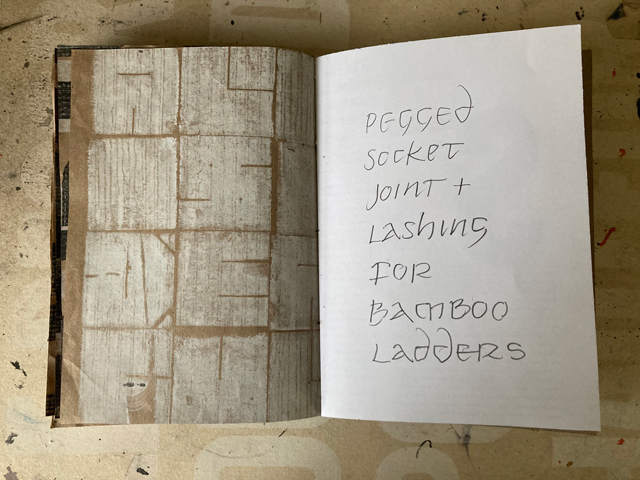 PEGGED
SOCKET
JOINT +
LASHING
FOR
BAMBOO
LADDERS